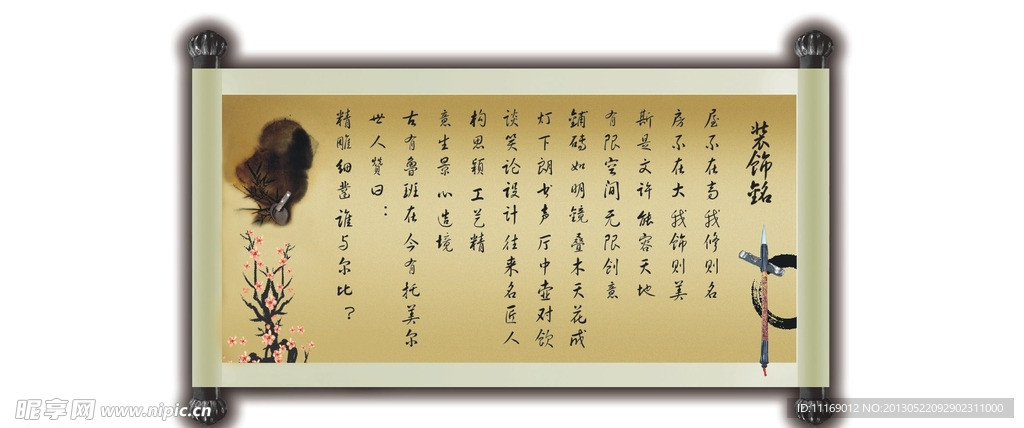 装饰铭
屋不在高我修则名
房不在大我饰则美
斯是文许能容天地
有限空间无限创意
铺砖如明镜叠木天花成
灯下朗书声厅中壶对饮
谈笑论设计往来名匠人
构思颖工艺精
意生景心造境
古有鲁班在今有托美尔
世人赞曰：
精雕细凿谁与尔比？
昵享网 www.nipic.cn
ID:11169012 NO:20130522092902311000